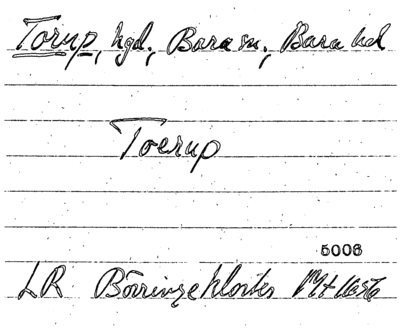 Torup, hgd, Bara sn, Bara hd
Toerup
5006
LR Börringekloster